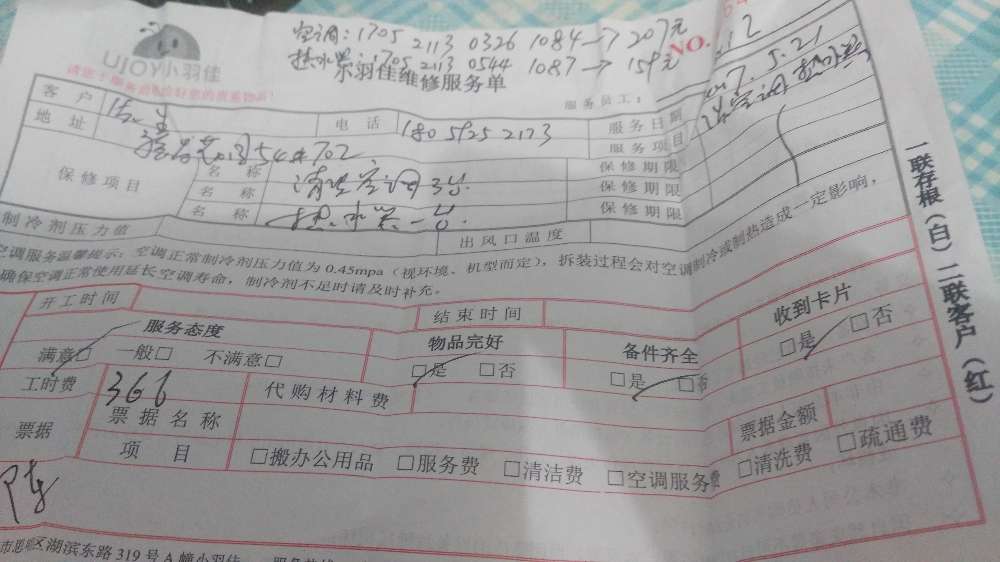 UJOY小羽佳
空调:1705 2113 0326 1084→207元
热水器:1705 2113 0544 1087→159元
NO.
小羽佳维修服务单
服务员工:
客户
电话 180 5925 2173
服务日期 5.21
地址 54#702
服务项目 清洗空调 热水器
保修项目
名称 清洗空调3台 保修期限
名称 热水器一台 保修期限
名称 保修期限
制冷剂压力值 出风口温度
空调服务温馨提示:空调正常制冷剂压力值为0.45mpa(视环境、机型而定),拆装过程会对空调制冷或制热造成一定影响,
确保空调正常使用延长空调寿命,制冷剂不足时请及时补充。
开工时间 结束时间
服务态度 物品完好 备件齐全 收到卡片
满意□ 一般□ 不满意□ □是 □否 □是 □否 □是 □否
工时费 366 代购材料费
票据 票据名称 票据金额
项目 □搬办公用品 □服务费 □清洁费 □空调服务费 □清洗费 □疏通费
市思明区湖滨东路319号A幢小羽佳
一联存根(白)二联客户(红)